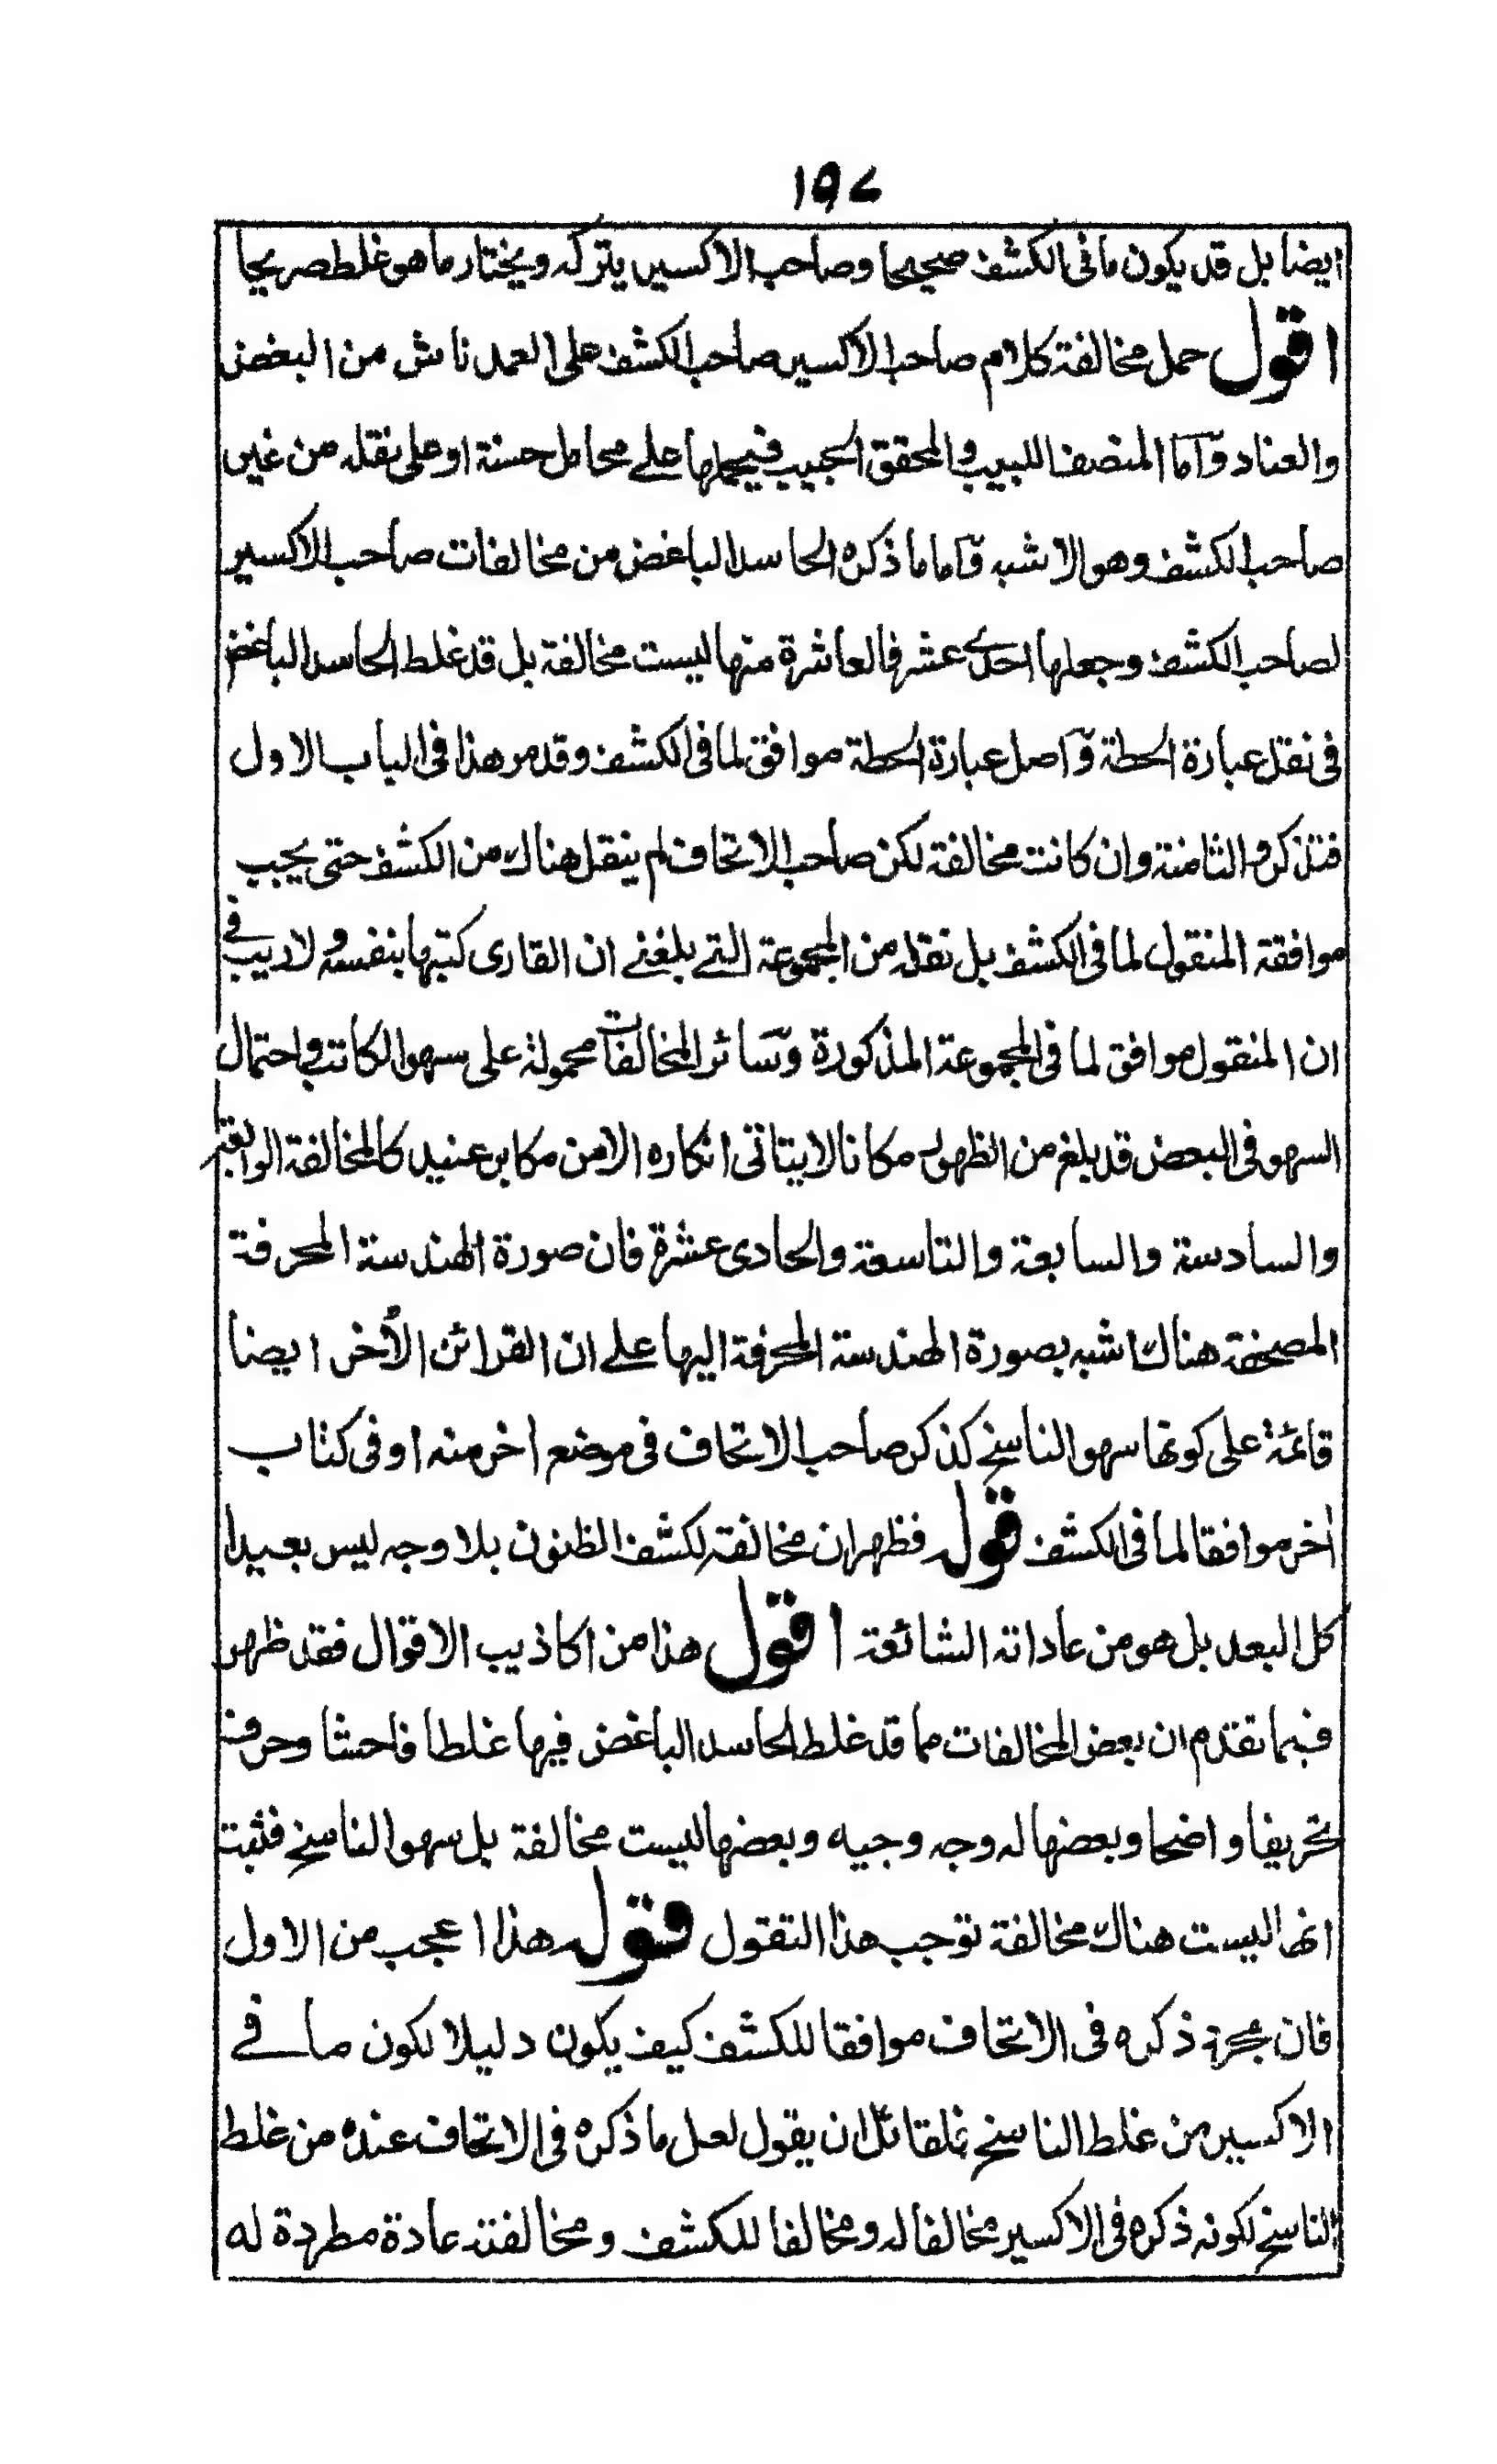 ١٩٧
ايضا بل قد يكون ما فى الكشف صحيحا وصاحب الاكسير يتركه ويختار ما هو غلط صريحا
اقول حمل مخالفة كلام صاحب الاكسير صاحب الكشف على العمد ناش من البغض
والعناد وآما المنصف اللبيب والمحقق النجيب فيحملها علے محامل حسنة او على نقله من غير
صاحب الكشف وهو الاشبه وآما ما ذكره الحاسد الباغض من مخالفات صاحب الاكسير
لصاحب الكشف وجعلها احدے عشر فالعاشرة منها ليست مخالفة بل قد غلط الحاسد الباغض
فى نقل عبارة الحطة وآصل عبارة الحطة موافق لما فى الكشف وقد مر هذا فى الباب الاول
فتذكر والثامنة وان كانت مخالفة لكن صاحب الاتحاف لم ينقل هناك من الكشف حتى يجب
موافقة المنقول لما فى الكشف بل نقله من المجموعة التے بلغنے ان القارى كتبها بنفسه ولا ريب فے
ان المنقول موافق لما فى المجموعة المذكورة وسآئر المخالفات محمولة على سهو الكاتب واحتمال
السهو فى البعض قد بلغ من الظهور مكانا لا يتاتى انكاره الا من مكابر عنيد كالمخالفة الرابعة
والسادسة والسابعة والتاسعة والحادى عشرة فان صورة الهندسة المحرفة
المصحفة هناك اشبه بصورة الهندسة المحرفة اليها علے ان القرائن الأخر ايضا
قائمة على كونها سهو الناسخ كذكر صاحب الاتحاف فى موضع اخر منه او فى كتاب
اخر موافقا لما فى الكشف قوله فظهر ان مخالفته لكشف الظنون بلا وجه ليس بعيدا
كل البعد بل هو من عاداته الشائعة اقول هذا من اكاذيب الاقوال فقد ظهر
فيما تقدم ان بعض المخالفات مما قد غلط الحاسد الباغض فيها غلطا فاحشا وحرف
تحريفا واضحا وبعضها له وجه وجيه وبعضها ليست مخالفة بل سهو الناسخ فثبت
انها ليست هناك مخالفة توجب هذا التقول قوله هذا اعجب من الاول
فان مجرد ذكره فى الاتحاف موافقا للكشف كيف يكون دليلا لكون ما فے
الاكسير من غلط الناسخ فلقائل ان يقول لعل ما ذكره فى الاتحاف عنده من غلط
الناسخ لكونه ذكره فى الاكسير مخالفا له ومخالفا للكشف ومخالفته عادة مطردة له